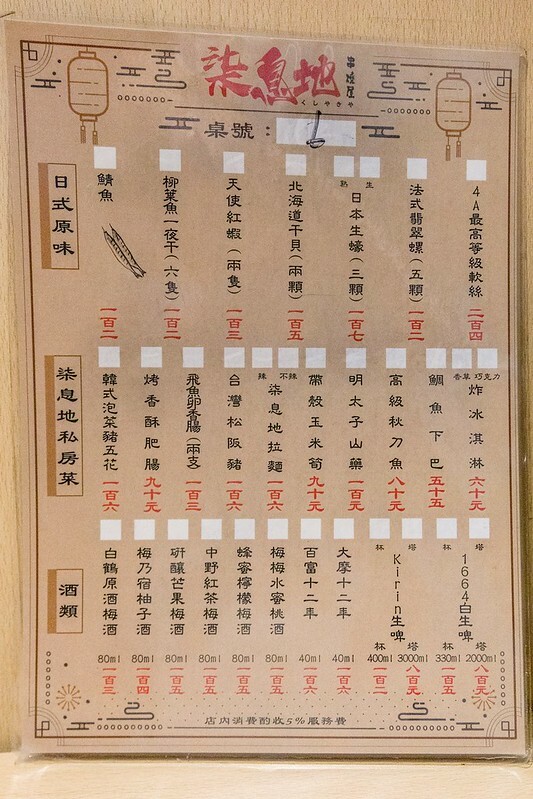 柒息地
串燒屋
くしやきや
桌號：L
日式原味
4A最高等級軟絲 二百四
法式翡翠螺（五顆） 一百二
熟 生 日本生蠔（三顆） 一百七
北海道干貝（兩顆） 一百五
天使紅蝦（兩隻） 一百三
柳葉魚一夜干（六隻） 一百二
鯖魚 一百二
柒息地私房菜
香草 巧克力 炸冰淇淋 六十元
鯛魚下巴 五十五
高級秋刀魚 八十元
明太子山藥 一百元
帶殼玉米筍 九十元
辣 不辣 柒息地拉麵 一百六
台灣松阪豬 一百六
飛魚卵香腸（兩支） 一百三
烤香酥肥腸 九十元
韓式泡菜豬五花 一百六
酒類
杯 塔 1664白生啤 塔 2000ml 八百元 杯 330ml 一百五
杯 塔 Kirin生啤 塔 3000ml 八百元 杯 400ml 一百二
大摩十二年 40ml 一百六
百富十二年 40ml 一百六
梅梅水蜜桃酒 80ml 一百五
蜂蜜檸檬梅酒 80ml 一百五
中野紅茶梅酒 80ml 一百五
研釀芒果梅酒 80ml 一百五
梅乃宿柚子酒 80ml 一百四
白鶴原酒梅酒 80ml 一百三
店內消費酌收5%服務費